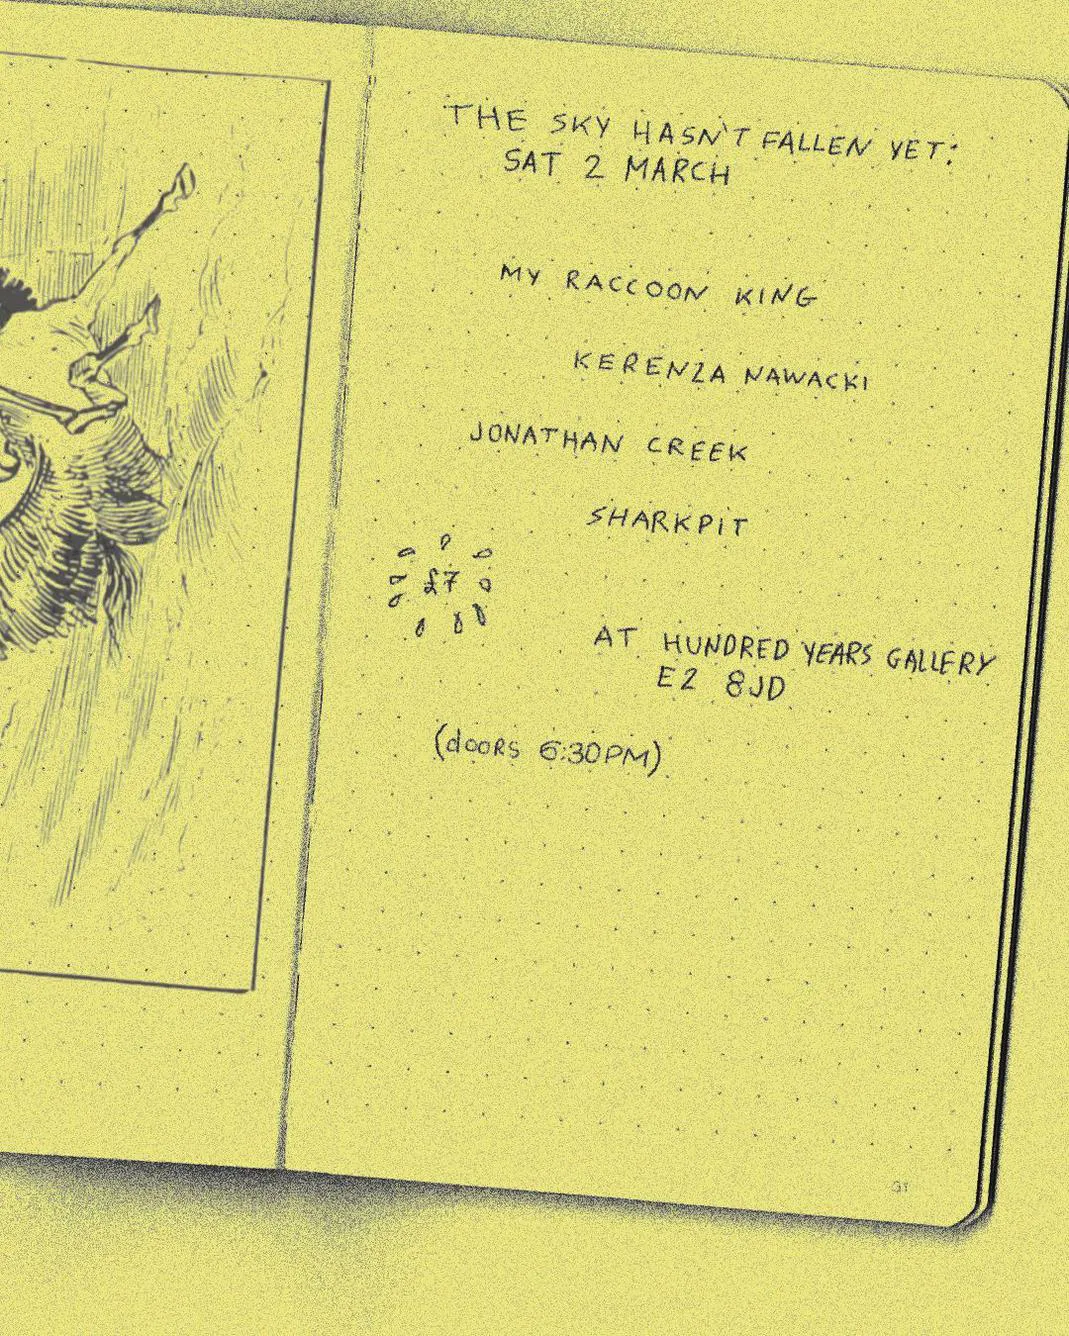 THE SKY HASN'T FALLEN YET:
SAT 2 MARCH
MY RACCOON KING
KERENZA NAWACKI
JONATHAN CREEK
SHARKPIT
£7
AT HUNDRED YEARS GALLERY
E2 8JD
(doors 6:30PM)